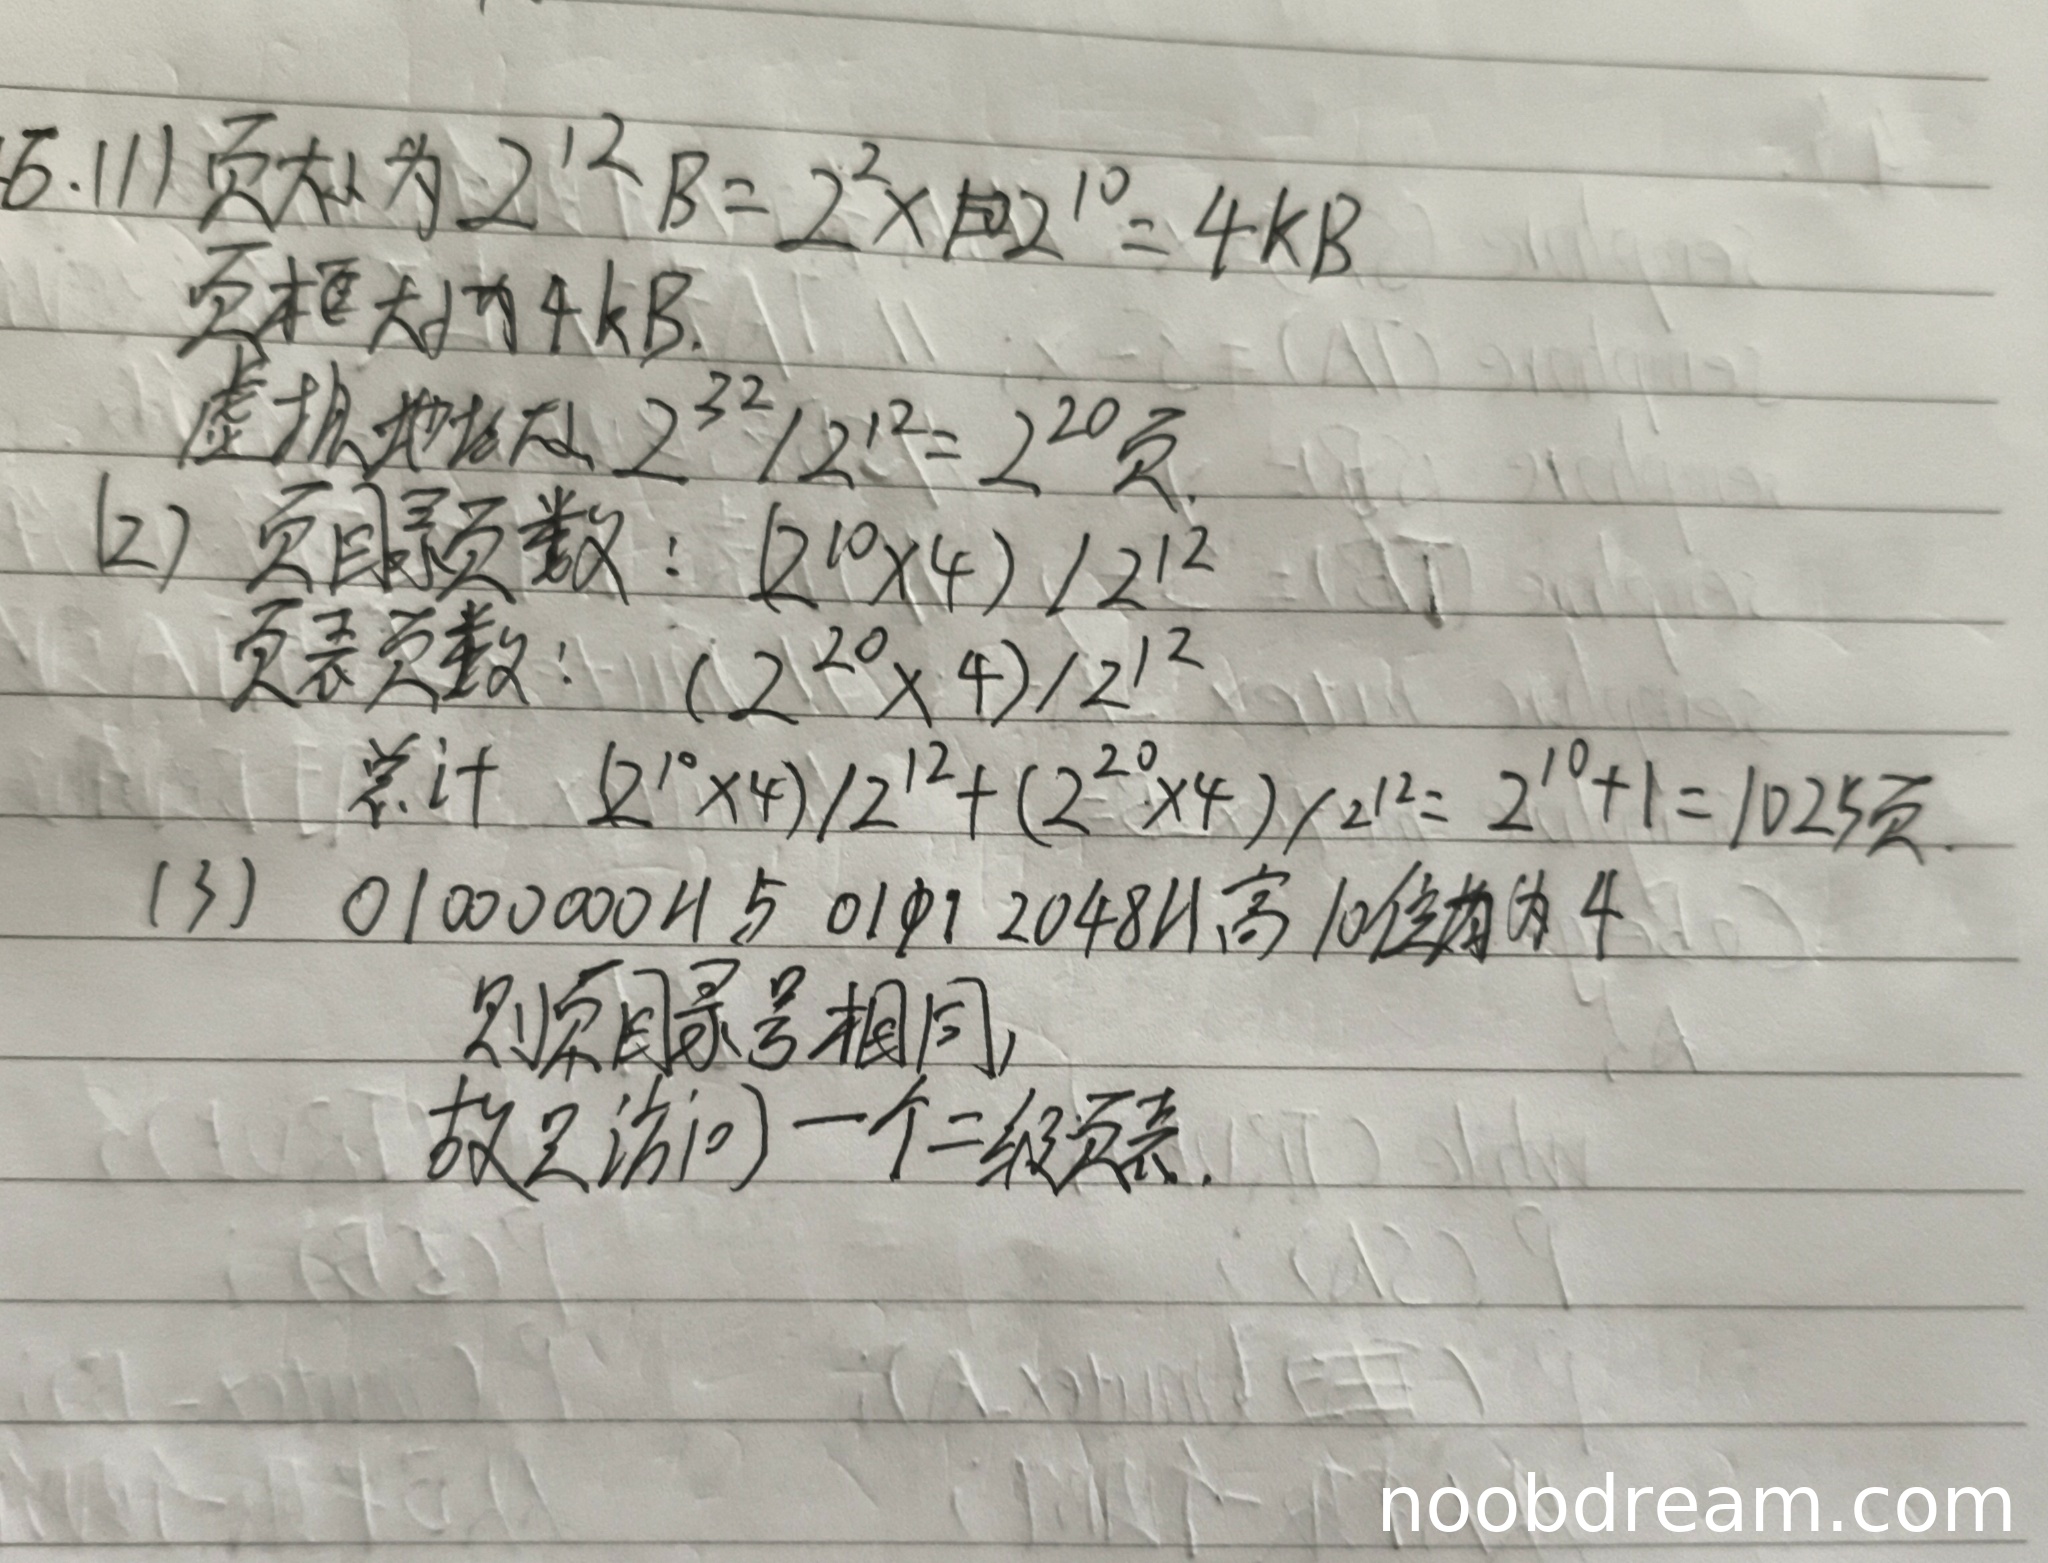 5.(1) 页大小为 2^12 B = 2^2 × 2^10 = 4KB
页框大小为 4KB.
虚拟地址大小 2^32 / 2^12 = 2^20 页.
(2) 页目录页数: (2^10×4) / 2^12
页表页数: (2^20 × 4) / 2^12
总计 (2^10 ×4) / 2^12 + (2^20 ×4) / 2^12 = 2^10 + 1 = 1025页.
(3) 01000000H 与 01 1 2048H 高 10位均为 4
则页目录号相同,
故只访问一个二级页表.
noobdream.com